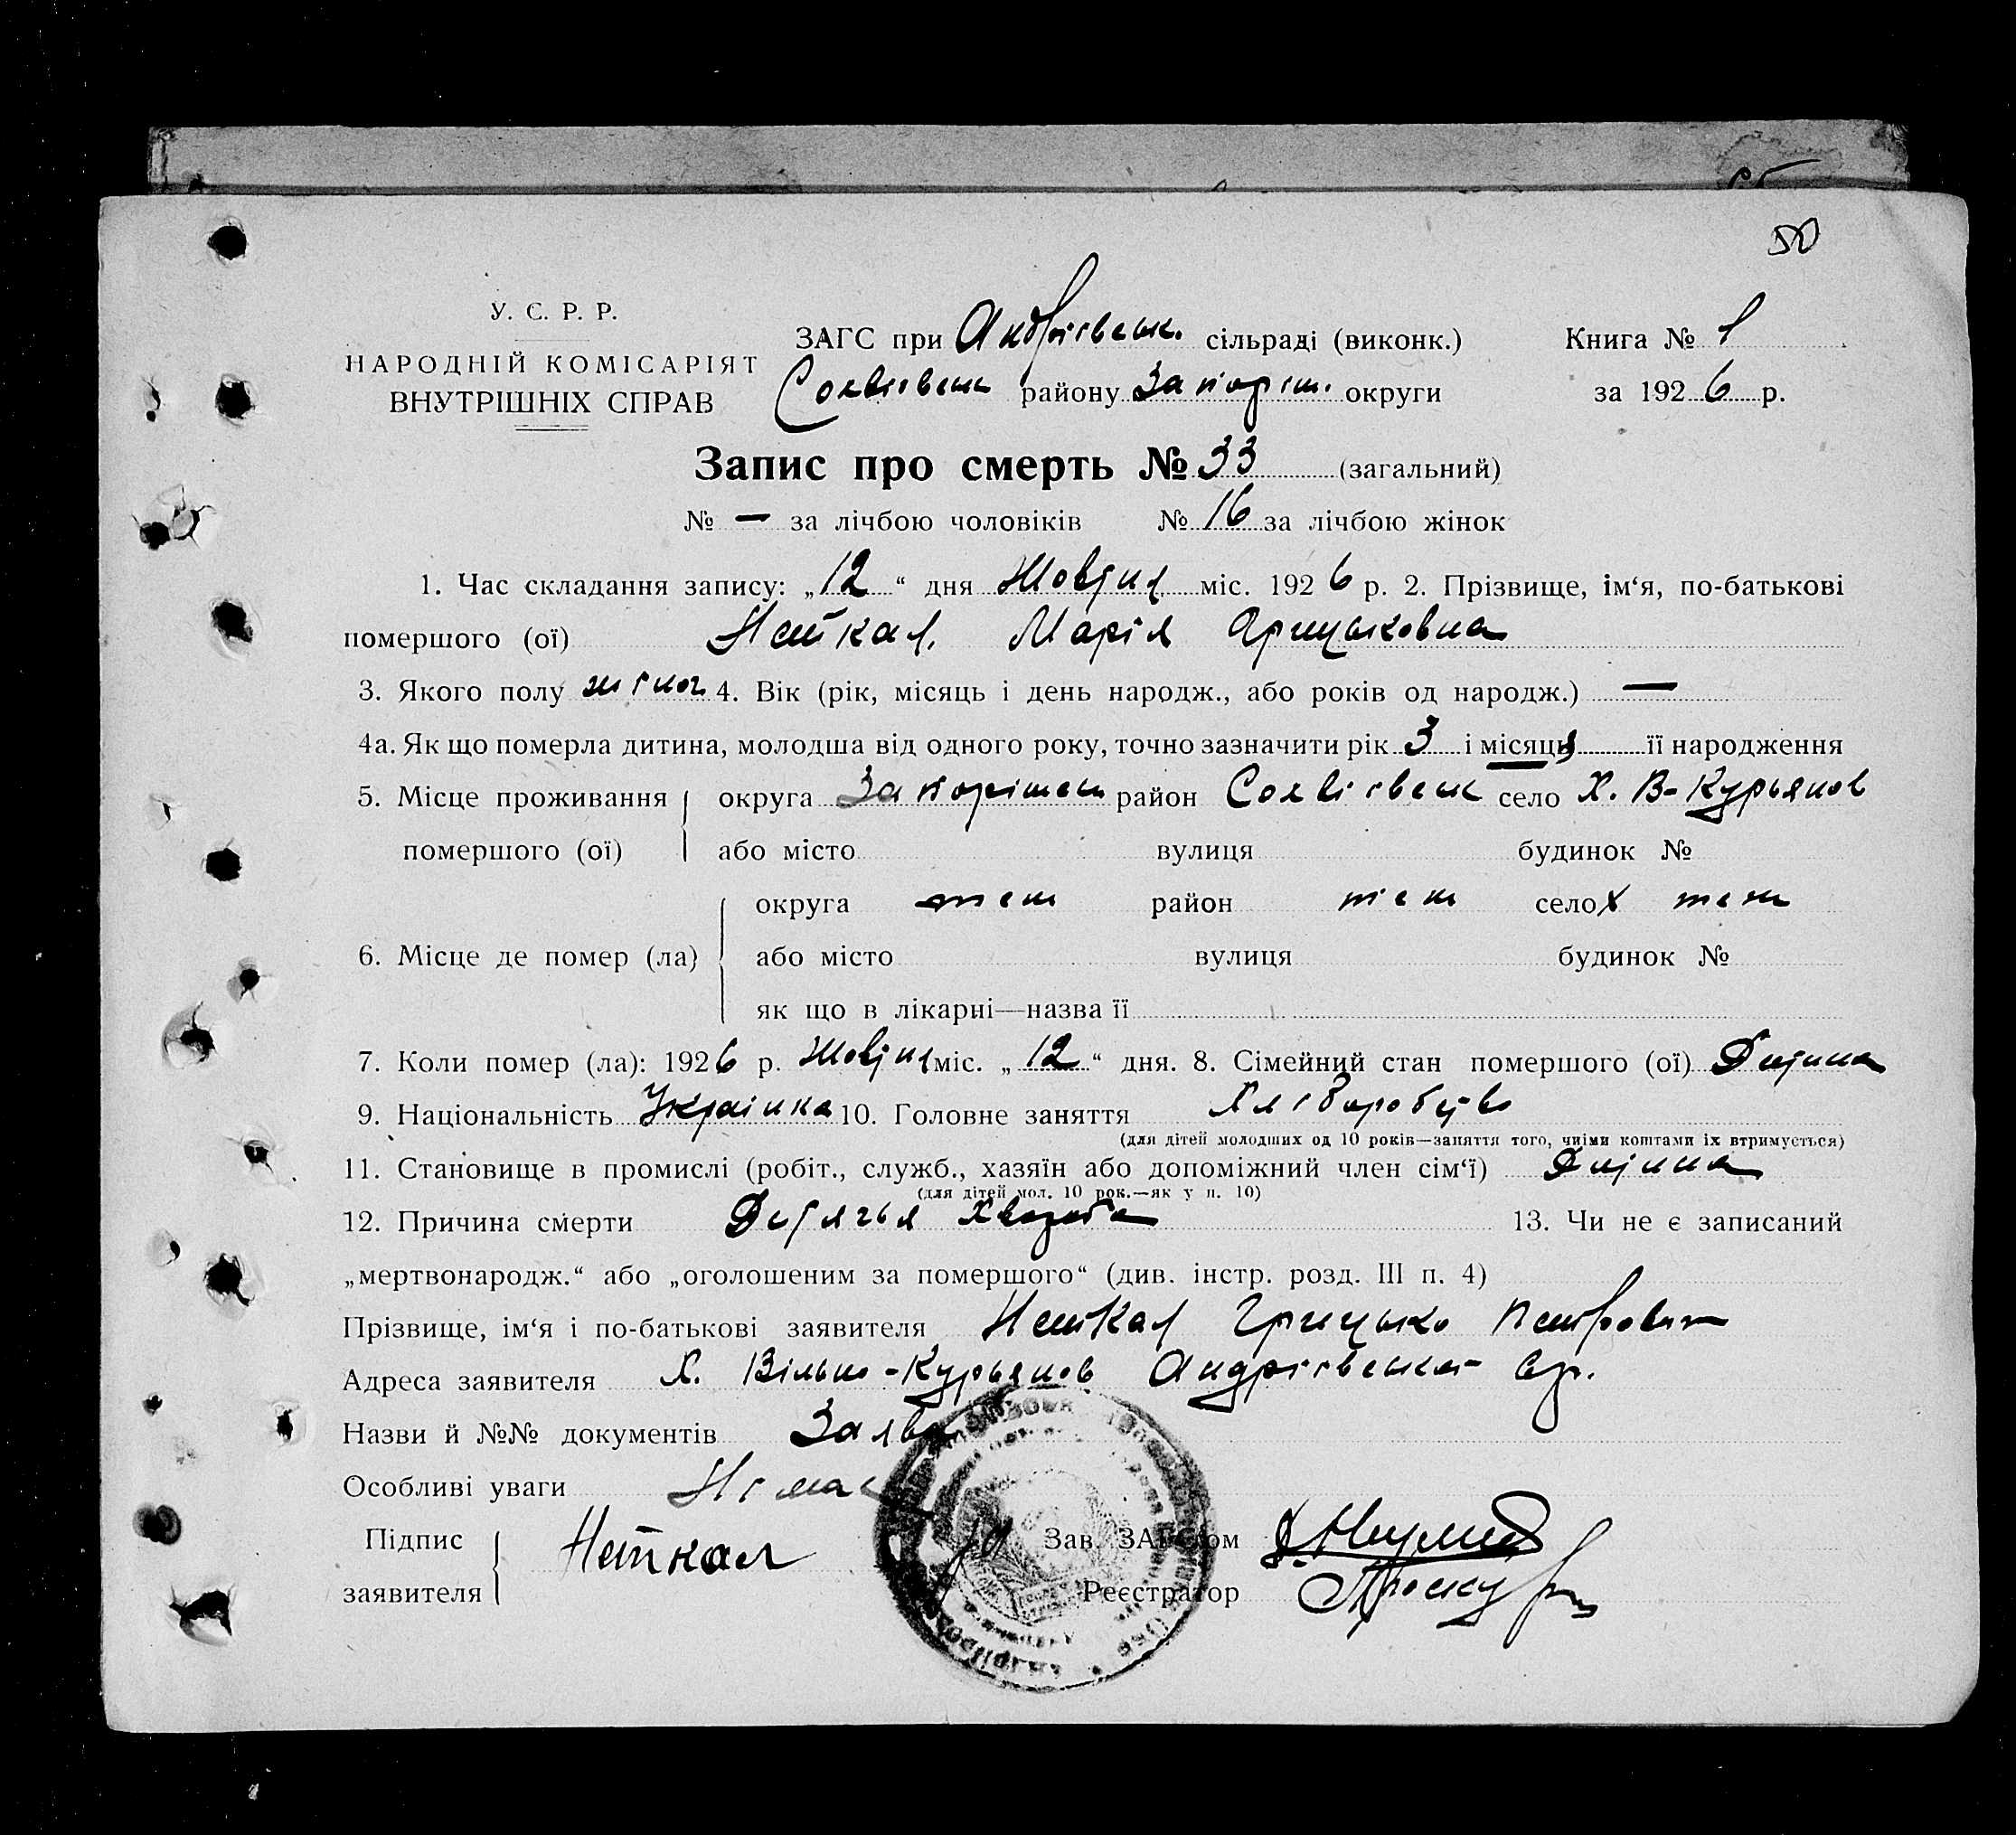 50
У. С. Р. Р.
НАРОДНІЙ КОМІСАРІЯТ
ВНУТРІШНІХ СПРАВ
ЗАГС при Андріївськ. сільраді (виконк.) Книга № 1
Софіївськ району Запоріж. округи за 1926 р.
Запис про смерть № 33 (загальний)
№ — за лічбою чоловіків № 16 за лічбою жінок
1. Час складання запису: „12“ дня Жовтня міс. 1926 р. 2. Прізвище, ім‘я, по-батькові
помершого (ої) Неткал Марія Грицьковна
3. Якого полу жіноч 4. Вік (рік, місяць і день народж., або років од народж.) —
4а. Як що померла дитина, молодша від одного року, точно зазначити рік 3 і місяця її народження
5. Місце проживання округа Запоріжськ район Софіївськ село Х. В-Курьянов
помершого (ої) або місто вулиця будинок №
округа теж район теж село х теж
6. Місце де помер (ла) або місто вулиця будинок №
як що в лікарні—назва її
7. Коли помер (ла): 1926 р. Жовтня міс. „12“ дня. 8. Сімейний стан помершого (ої) Дитина
9. Національність Українка 10. Головне заняття Хліборобство
(для дітей молодших од 10 років—заняття того, чиїми коштами їх втримується)
11. Становище в промислі (робіт., служб., хазяїн або допоміжний член сім‘ї) Дитина
(для дітей мол. 10 рок.—як у п. 10)
12. Причина смерти Дитячья Хвороба 13. Чи не є записаний
„мертвонародж.“ або „оголошеним за помершого“ (див. інстр. розд. III п. 4)
Прізвище, ім‘я і по-батькові заявителя Неткал Грицько Петрович
Адреса заявителя Х. Вільно-Курьянов Андріївська
Назви й №№ документів Заява
Особливі уваги Немає
Підпис заявителя Неткал Зав. ЗАГСом
Реєстратор